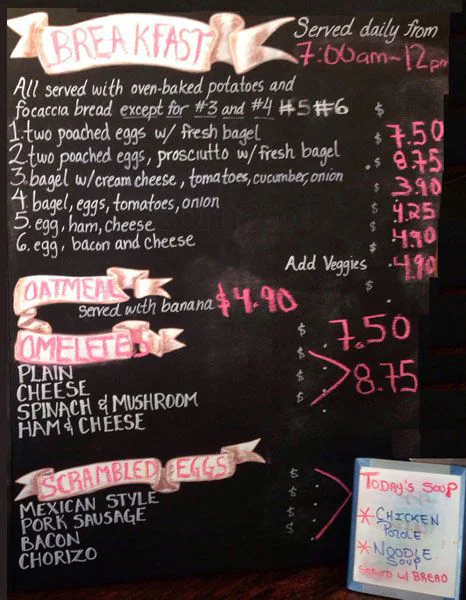 BREAKFAST
Served daily from
7:00am~12pm
All served with oven-baked potatoes and
focaccia bread except for #3 and #4 #5 #6 $
1. two poached eggs w/ fresh bagel $ 7.50
2. two poached eggs, prosciutto w/ fresh bagel $ 8.75
3. bagel w/cream cheese, tomatoes, cucumber, onion $ 3.90
4. bagel, eggs, tomatoes, onion $ 4.25
5. egg, ham, cheese $ 4.90
6. egg, bacon and cheese $ 4.90
Add Veggies $
OATMEAL
served with banana $4.90
OMELETES
PLAIN $ 7.50
CHEESE $
SPINACH & MUSHROOM $ 8.75
HAM & CHEESE $
SCRAMBLED EGGS
MEXICAN STYLE $
PORK SAUSAGE $
BACON $
CHORIZO $
TODAY'S SOUP
* CHICKEN
POZOLE
* NOODLE
SOUP
SERVED w/ BREAD